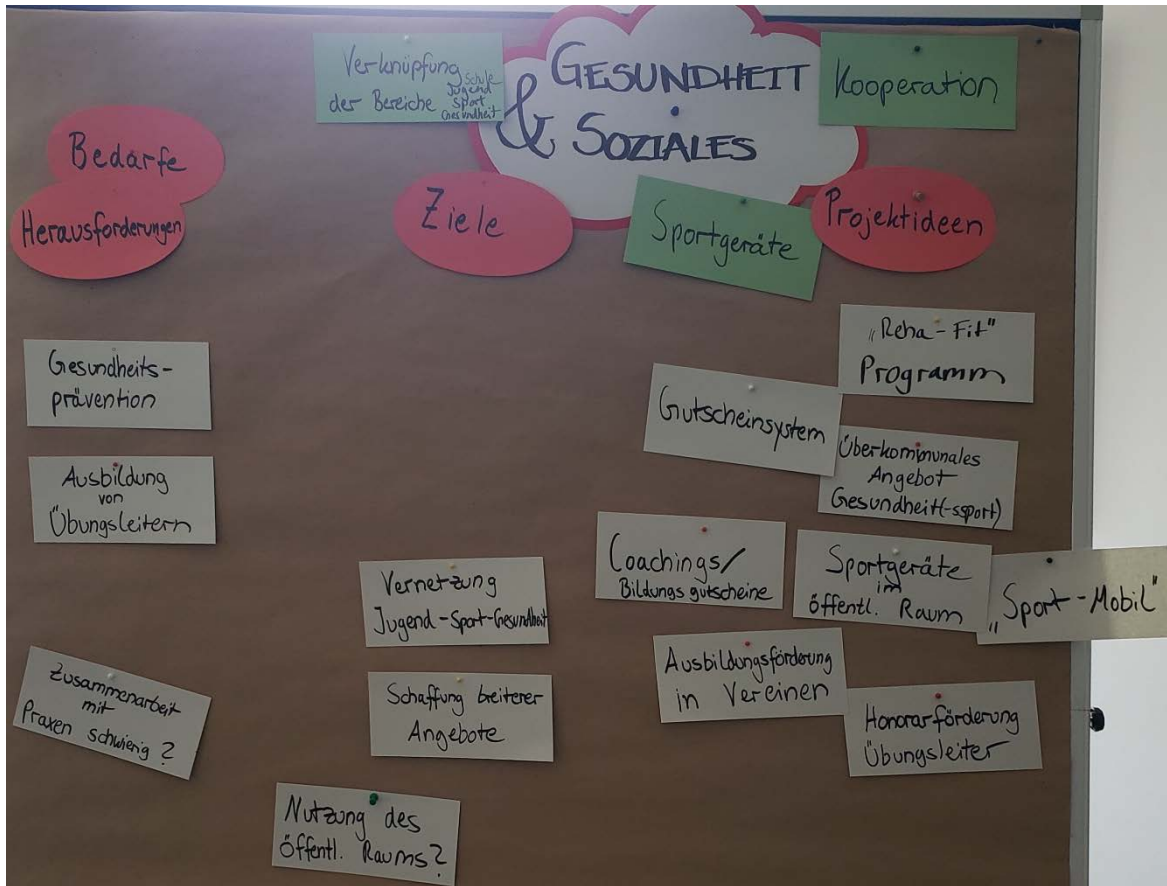 GESUNDHEIT
& SOZIALES
Verknüpfung
der Bereiche
Schule
Jugend
Sport
Gesundheit
Kooperation
Bedarfe
Herausforderungen
Gesundheits-
prävention
Ausbildung
von
Übungsleitern
Zusammenarbeit
mit
Praxen schwierig?
Ziele
Vernetzung
Jugend-Sport-Gesundheit
Schaffung breiterer
Angebote
Nutzung des
öffentl. Raums?
Sportgeräte
Projektideen
„Reha-Fit"
Programm
Gutscheinsystem
Überkommunales
Angebot
Gesundheit(-ssport)
Coachings/
Bildungsgutscheine
Sportgeräte
im
öffentl. Raum
„Sport-Mobil"
Ausbildungsförderung
in Vereinen
Honorarförderung
Übungsleiter